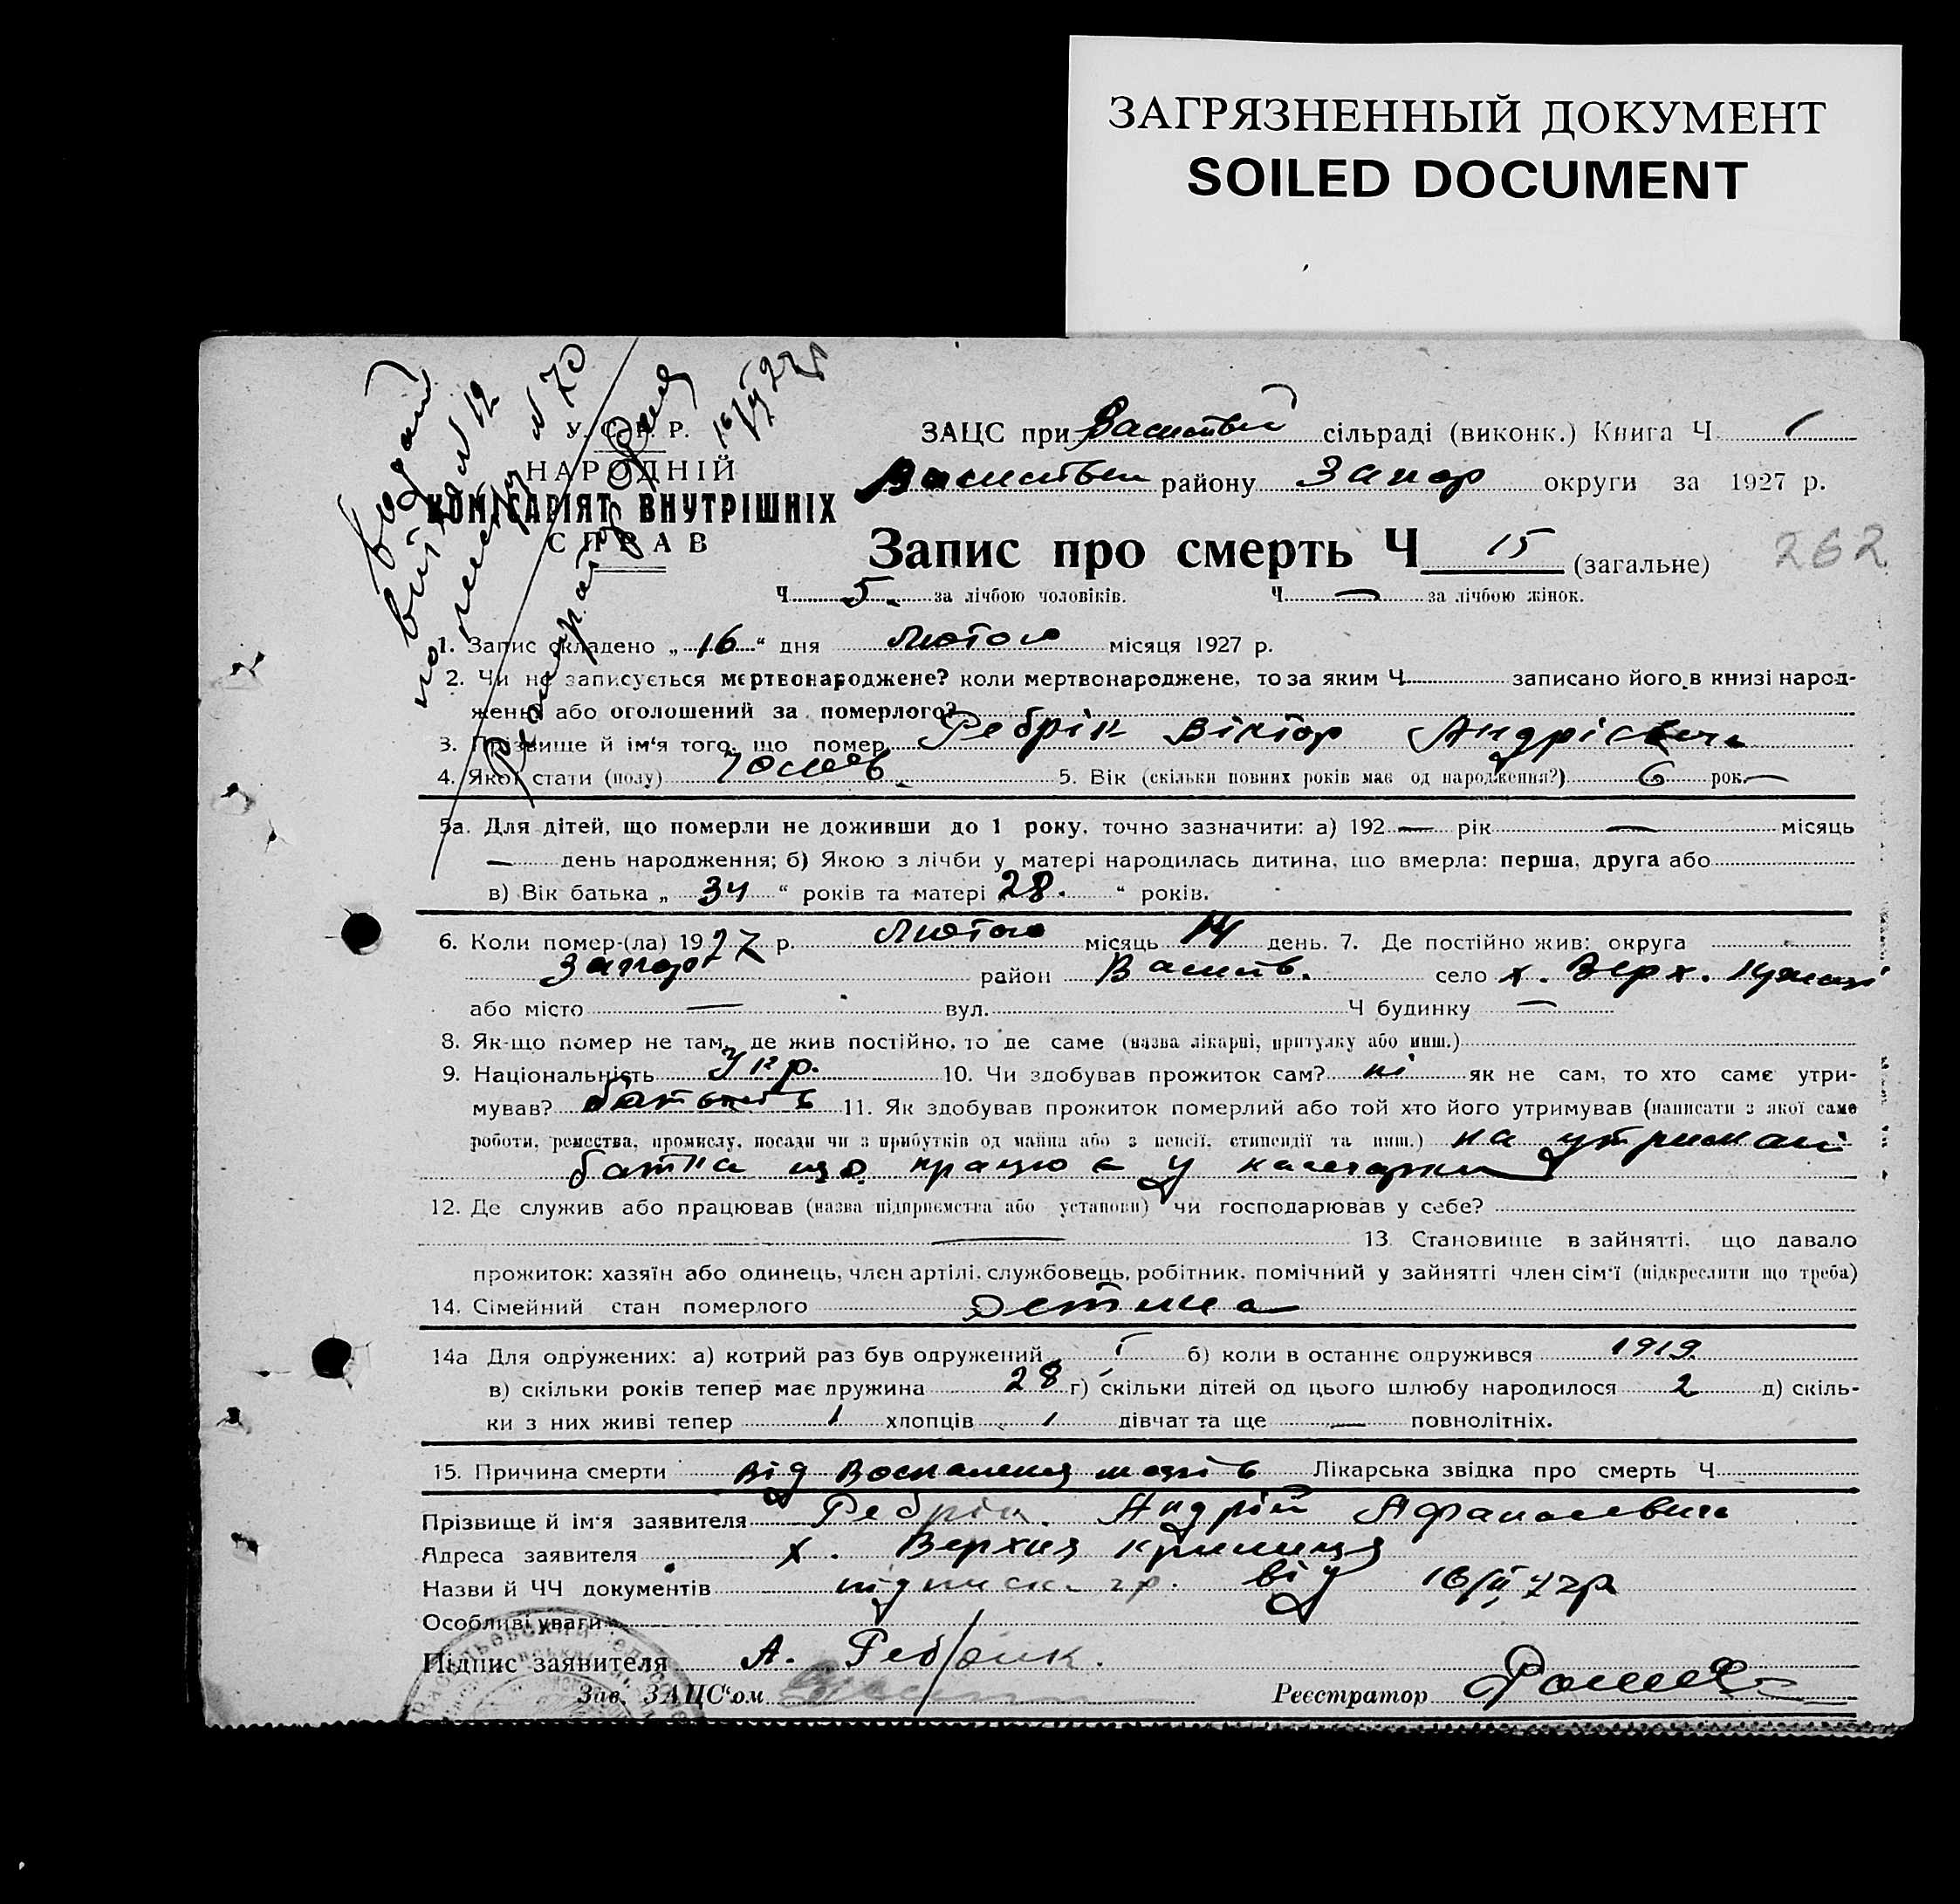 ЗАГРЯЗНЕННЫЙ ДОКУМЕНТ
SOILED DOCUMENT
У. С. Р. Р.
НАРОДНІЙ
КОМІСАРІЯТ ВНУТРІШНІХ
СПРАВ
видан
ЗАЦС при сільраді (виконк.) Книга Ч 1
району Запор округи за 1927 р.
Запис про смерть Ч 15 (загальне) 262
Ч 5. за лічбою чоловіків. Ч — за лічбою жінок.
1. Запис складено „ 16 “ дня Лютого місяця 1927 р.
2. Чи не записується мертвонароджене? коли мертвонароджене, то за яким Ч записано його в книзі народ-
жень або оголошений за померлого?
3. Прізвище й ім‘я того, що помер Ребрік Віктор Андрієвич
4. Якої стати (полу) 5. Вік (скільки повних років має од народження?) 6 рок. —
5а. Для дітей, що померли не доживши до 1 року, точно зазначити: а) 192 — рік — місяць
— день народження; б) Якою з лічби у матері народилась дитина, що вмерла: перша, друга або
в) Вік батька „ 34 “ років та матері „ 28. “ років.
6. Коли помер-(ла) 1927 р. Лютого місяць 14 день. 7. Де постійно жив: округа
Запор район Василів. село х. Верх.
або місто — вул. Ч будинку —
8. Як-що помер не там, де жив постійно, то де саме (назва лікарні, притулку або инш.)
9. Національність Укр. 10. Чи здобував прожиток сам? ні як не сам, то хто саме утри-
мував? батьків 11. Як здобував прожиток померлий або той хто його утримував (написати з якої саме
роботи, ремества, промислу, посади чи з прибутків од майна або з пенсії, стипендії та инш.) на утримані
батька що працює у
12. Де служив або працював (назва підприємства або установи) чи господарював у себе?
— 13. Становище в зайнятті, що давало
прожиток: хазяїн або одинець, член артілі, службовець, робітник, помічний у зайнятті член сім‘ї (підкреслити що треба)
14. Сімейний стан померлого дєтина
14а Для одружених: а) котрий раз був одружений і б) коли в останнє одружився 1919
в) скільки років тепер має дружина 28 г) скільки дітей од цього шлюбу народилося 2 д) скіль-
ки з них живі тепер 1 хлопців 1 дівчат та ще — повнолітніх.
15. Причина смерти від Воспаления мозгів Лікарська звідка про смерть Ч
Прізвище й ім‘я заявителя Ребрік. Андрій Афанасевич
Адреса заявителя х. Верхня криниця
Назви й ЧЧ документів підписк. гр. від 16/II 27 р
Особливі уваги
Підпис заявителя А. Ребрик.
Зав. ЗАЦС‘ом Реєстратор